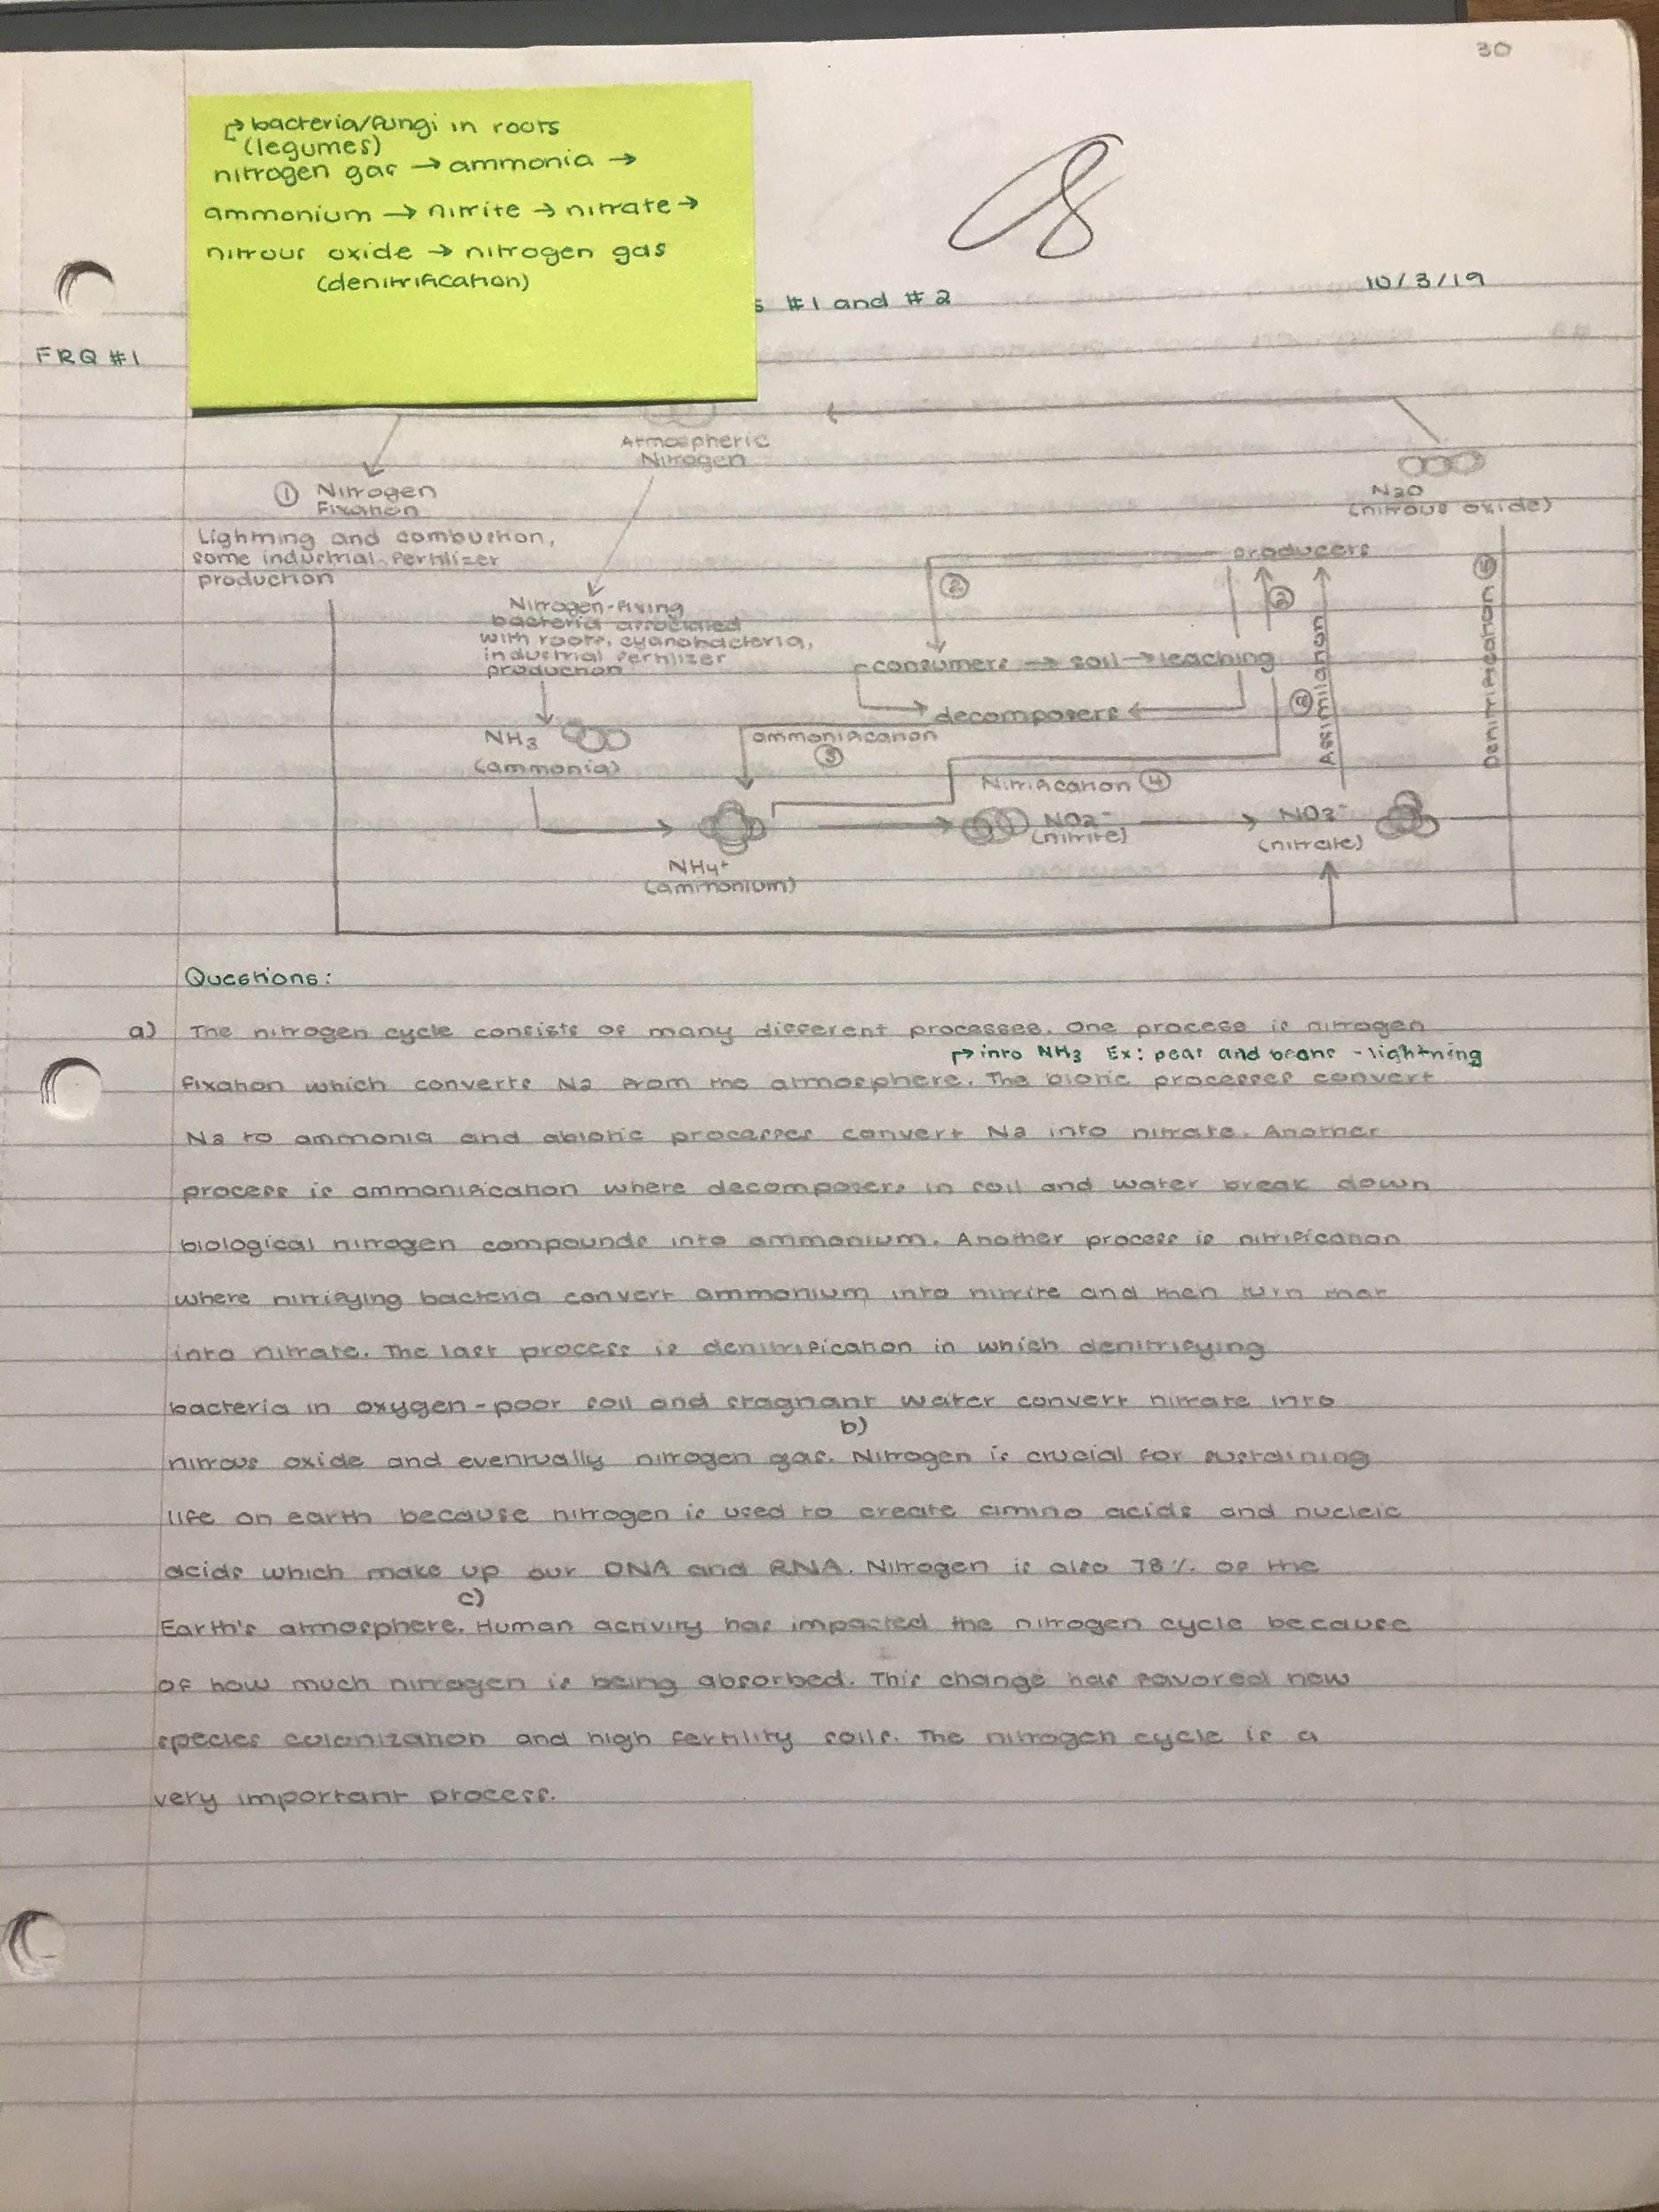 30
bacteria/fungi in roots
(legumes)
nitrogen gas → ammonia →
ammonium → nitrite → nitrate →
nitrous oxide → nitrogen gas
(denitrification)
s #1 and #2
10/3/19
FRQ #1
Atmospheric
Nitrogen
① Nitrogen
Fixation
Lightning and combustion,
some industrial fertilizer
production
N2O
(nitrous oxide)
producers
②
②
Nitrogen-fixing
bacteria associated
with roots, cyanobacteria,
industrial fertilizer
production
consumers → soil → leaching
decomposers
②
Assimilation
Denitrification ⑤
NH3
(ammonia)
ammonification
③
Nitrification ④
NO2-
(nitrite)
NO3-
(nitrate)
NH4+
(ammonium)
Questions:
a) The nitrogen cycle consists of many different processes. One process is nitrogen
→ into NH3 Ex: peas and beans - lightning
fixation which converts N2 from the atmosphere. The biotic processes convert
N2 to ammonia and abiotic processes convert N2 into nitrate. Another
process is ammonification where decomposers in soil and water break down
biological nitrogen compounds into ammonium. Another process is nitrification
where nitrifying bacteria convert ammonium into nitrite and then turn that
into nitrate. The last process is denitrification in which denitrifying
bacteria in oxygen-poor soil and stagnant water convert nitrate into
b)
nitrous oxide and eventually nitrogen gas. Nitrogen is crucial for sustaining
life on earth because nitrogen is used to create amino acids and nucleic
acids which make up our DNA and RNA. Nitrogen is also 78% of the
c)
Earth's atmosphere. Human activity has impacted the nitrogen cycle because
of how much nitrogen is being absorbed. This change has favored new
species colonization and high fertility soils. The nitrogen cycle is a
very important process.